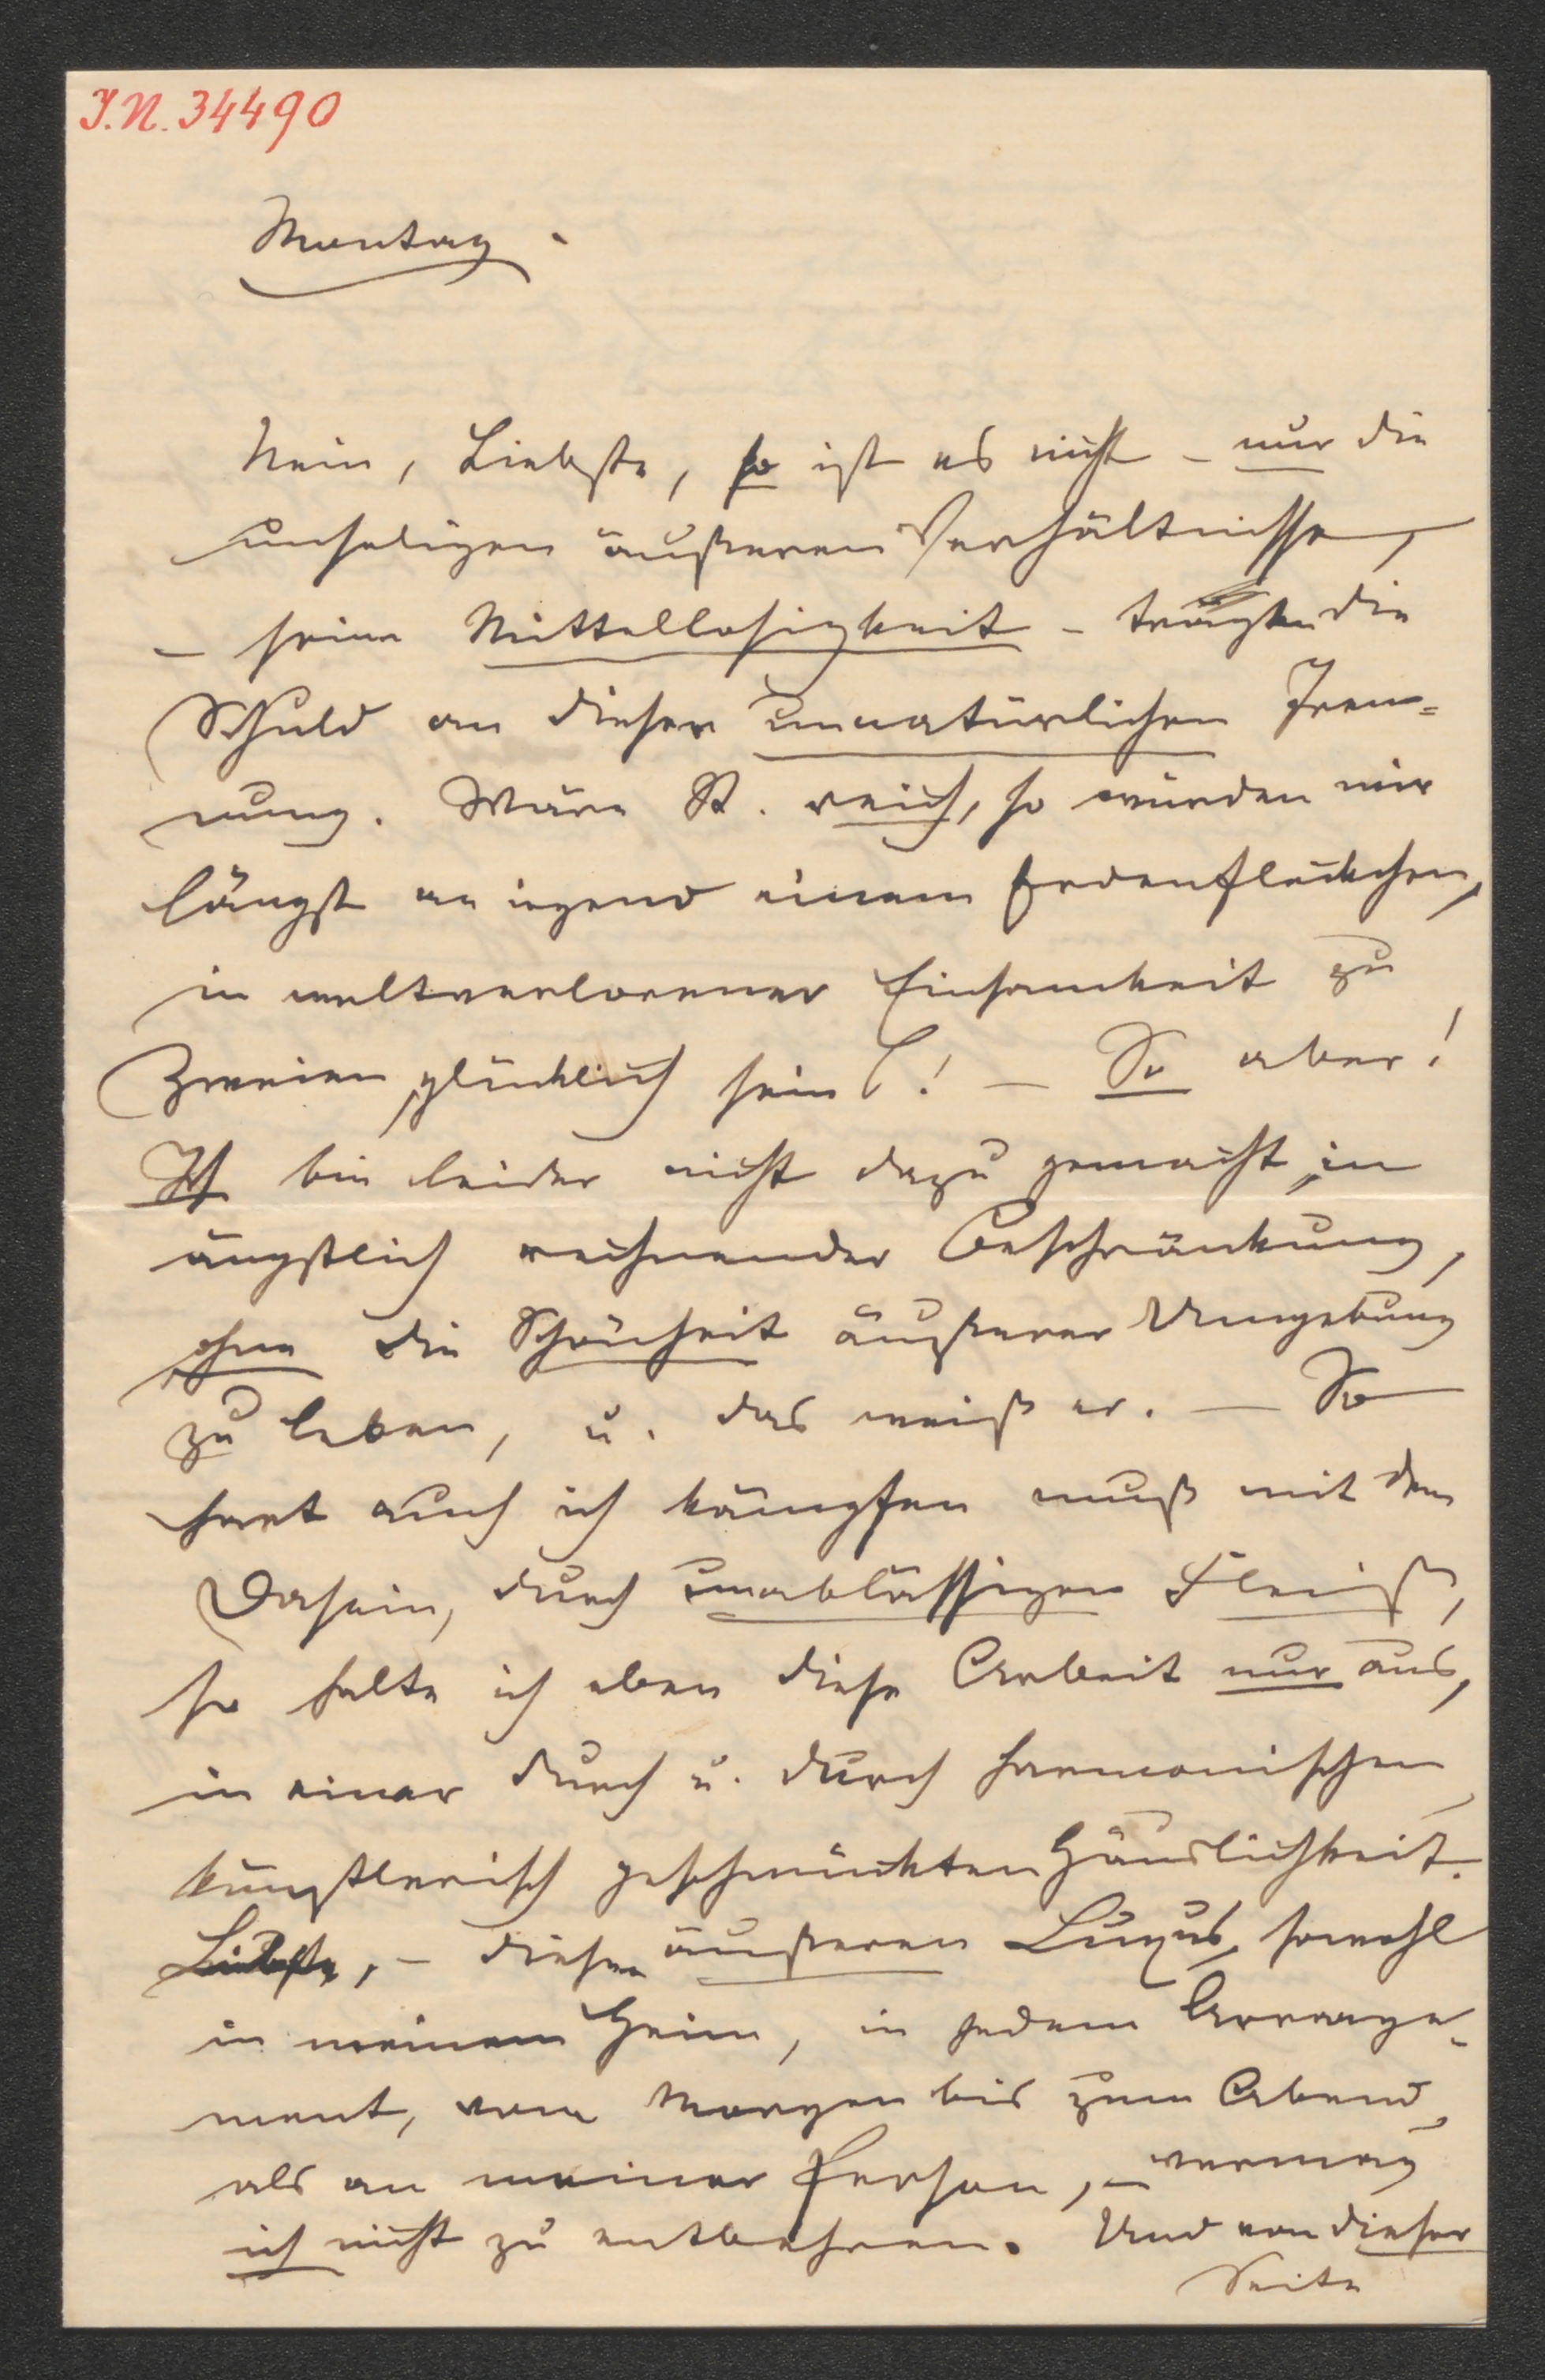 I.N. 34490
Montag.
Nein, Liebste, so ist es nicht – nur die
unseligen äußeren Verhältnisse,
– seine Mittellosigkeit – tragen die
Schuld an dieser unnatürlichen Tren=
nung. Wäre St. reich, so würden wir
längst an irgend einem Erdenfleckchen,
in weltverlorener Einsamkeit zu
Zweien glücklich sein! – So aber!
Ich bin leider nicht dazu gemacht, in
ängstlich rechnender Beschränkung,
ohne die Schönheit äußerer Umgebung
zu leben, u. das weiß er. – So
hart auch ich kämpfen muß mit dem
Dasein, durch unablässigen Fleiß,
so halte ich eben diese Arbeit nur aus,
in einer durch u. durch harmonischen
künstlerisch geschmückten Häuslichkeit.
Liebste, – diesen äußeren Luxus, sowohl
in meinem Heim, in jedem Arrange-
ment, vom Morgen bis zum Abend,
als an meiner Person, – vermag
ich nicht zu entbehren. Und von dieser
Seite